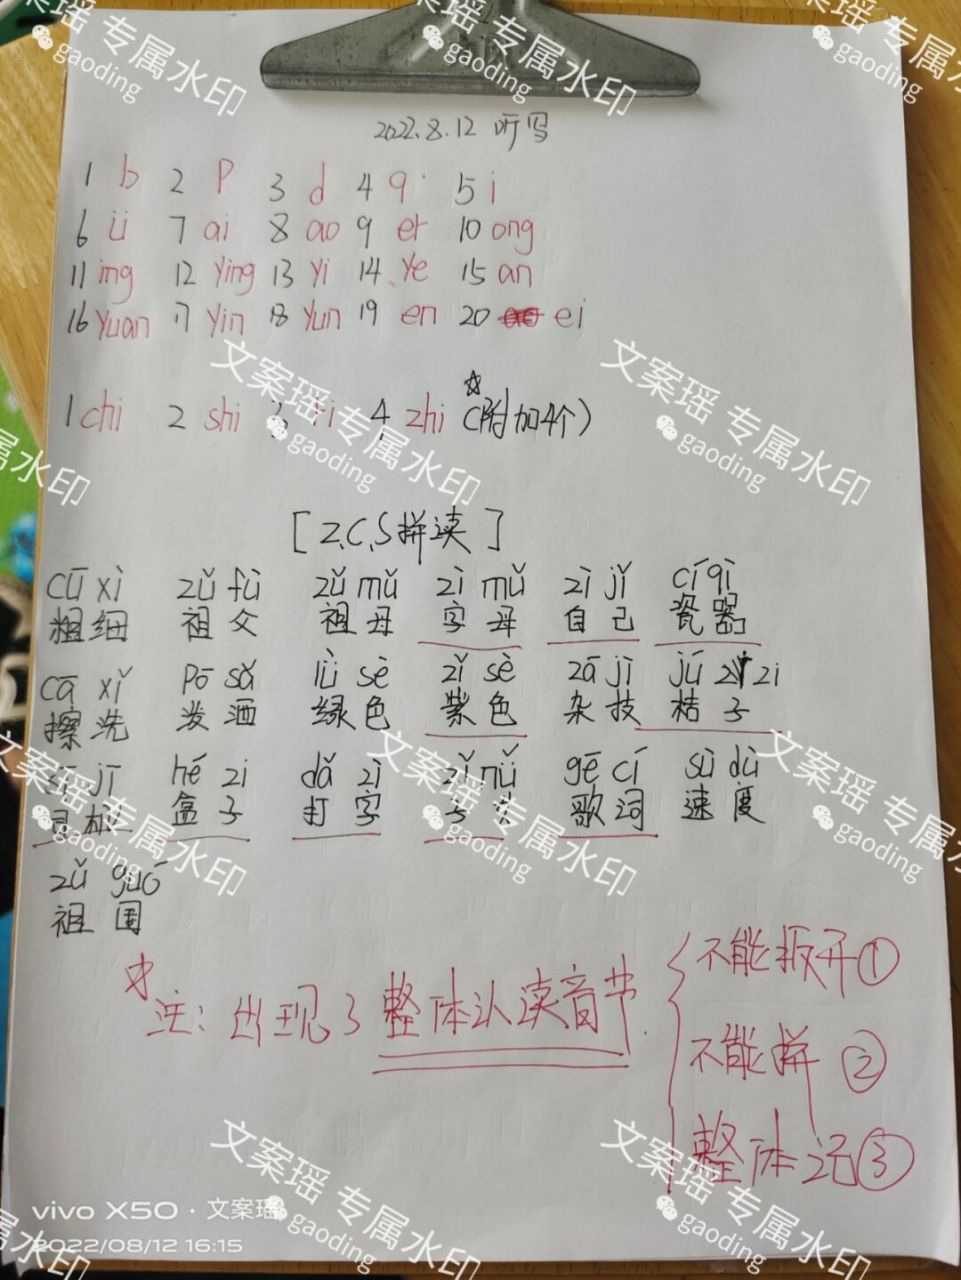 2022.8.12 听写
1 b 2 p 3 d 4 q 5 i
6 ü 7 ai 8 ao 9 er 10 ong
11 ing 12 ying 13 yi 14 ye 15 an
16 yuan 17 yin 18 yun 19 en 20 ei
1 chi 2 shi 3 ri 4 zhi (附加4个)
[z、c、s拼读]
cū xì zǔ fù zǔ mǔ zì mǔ zì jǐ cí qì
粗细 祖父 祖母 字母 自己 瓷器
cā xǐ pō sǎ lǜ sè zǐ sè zá jì jú zi
擦洗 泼洒 绿色 紫色 杂技 桔子
sī jī hé zi dǎ zì zǐ nǚ gē cí sù dù
司机 盒子 打字 子女 歌词 速度
zǔ guó
祖国
注: 出现了整体认读音节
不能扳开①
不能拼②
整体记③
vivo X50 · 文案瑶
2022/08/12 16:15
文案瑶 专属水印
gaoding